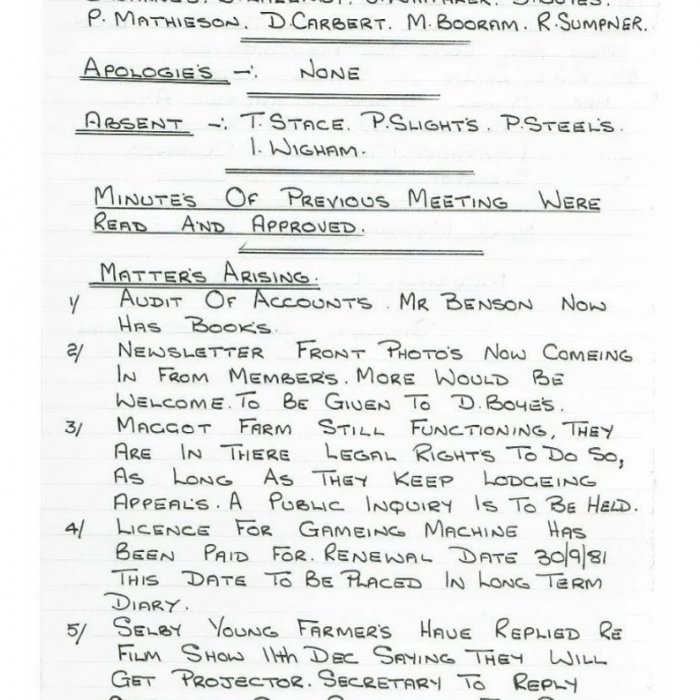 P. MATHIESON. D. CARBERT. M. BOORAM. R. SUMPNER.
APOLOGIE'S -: NONE
ABSENT -: T. STACE. P. SLIGHT'S. P. STEEL'S.
I. WIGHAM.
MINUTE'S OF PREVIOUS MEETING WERE
READ AND APPROVED.
MATTER'S ARISING.
1/ AUDIT OF ACCOUNT'S. MR BENSON NOW
HAS BOOK'S.
2/ NEWSLETTER FRONT PHOTO'S NOW COMEING
IN FROM MEMBER'S. MORE WOULD BE
WELCOME. TO BE GIVEN TO D. BOYE'S.
3/ MAGGOT FARM STILL FUNCTIONING, THEY
ARE IN THERE LEGAL RIGHT'S TO DO SO,
AS LONG AS THEY KEEP LODGEING
APPEAL'S. A PUBLIC INQUIRY IS TO BE HELD.
4/ LICENCE FOR GAMEING MACHINE HAS
BEEN PAID FOR. RENEWAL DATE 30/9/81
THIS DATE TO BE PLACED IN LONG TERM
DIARY.
5/ SELBY YOUNG FARMER'S HAVE REPLIED RE
FILM SHOW 11th DEC SAYING THEY WILL
GET PROJECTOR. SECRETARY TO REPLY